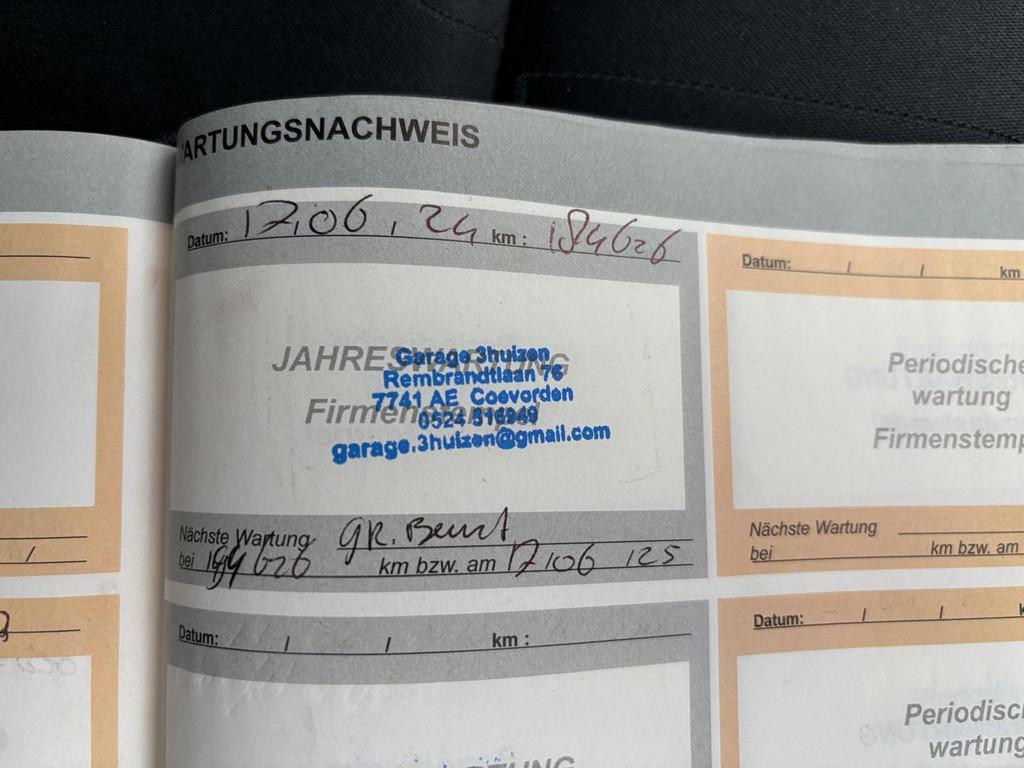 ARTUNGSNACHWEIS
Datum: 17.06.24 km: 184626
JAHRESWARTUNG
Firmenstempel
Garage 3huizen
Rembrandtlaan 76
7741 AE Coevorden
0524 516949
garage.3huizen@gmail.com
Nächste Wartung GR. Beurt
bei 194626 km bzw. am 17/06/25
Datum: / / km:
Datum: / / km
Periodische
wartung
Firmenstemp
Nächste Wartung
bei km bzw. am
Datum: / / k
Periodisc
wartung